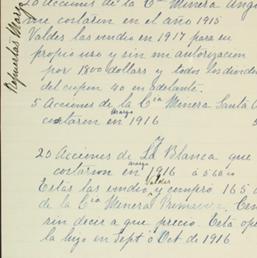 20 Acciones de la Cia Minera Ang
que costaron en el año 1915
Valdes las vendio en 1917 para su
propio uso y sin mi autorizacion
por 1800 dollars y todos los dividen
del cupon 40 en adelante.
5 Acciones de la Cia Minera Santa
costaron en marzo 1916
20 Acciones de La Blanca que
costaron en marzo 1916 á $60
Estas las vendio Valdes y compró 165 a
de la Cia Minera
sin decir a que precio. Esta ope
la hijo en Sept ó Oct de 1916